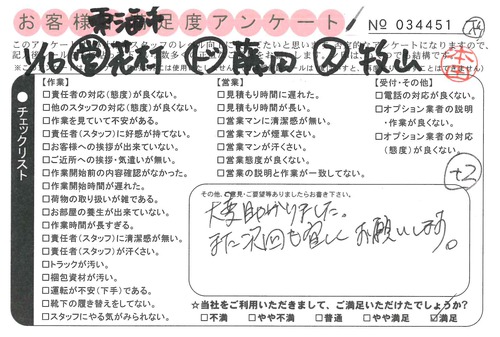 お客様 足度アンケート
東海市
No 034451
【作業】
□責任者の対応(態度)が良くない。
□他のスタッフの対応(態度)が良くない。
□作業を見ていて不安がある。
□責任者(スタッフ)に好感が持てない。
□お客様への挨拶が出来ていない。
□ご近所への挨拶・気遣いが無い。
□作業開始前の内容確認がなかった。
□作業開始時間が遅れた。
□荷物の取り扱いが雑である。
□お部屋の養生が出来ていない。
□作業時間が長すぎる。
□責任者(スタッフ)に清潔感が無い。
□責任者(スタッフ)が汗くさい。
□トラックが汚い。
□梱包資材が汚い。
□運転が不安(下手)である。
□靴下の履き替えをしてない。
□スタッフにやる気がみられない。
チェックリスト
【営業】
□見積もり時間に遅れた。
□見積もり時間が長い。
□営業マンに清潔感が無い。
□営業マンが煙草くさい。
□営業マンが汗くさい。
□営業態度が良くない。
□営業の説明と作業が一致してない。
【受付・その他】
□電話の対応が良くない。
□オプション業者の説明
・作業が良くない。
□オプション業者の対応
(態度)が良くない。
+2
その他、ご意見・ご要望等ありましたらお書き下さい。
大変助かりました。
また次回も宜しくお願いします。
☆当社をご利用いただきまして、ご満足いただけたでしょうか?
□不満 □やや不満 □普通 □やや満足 ☑満足